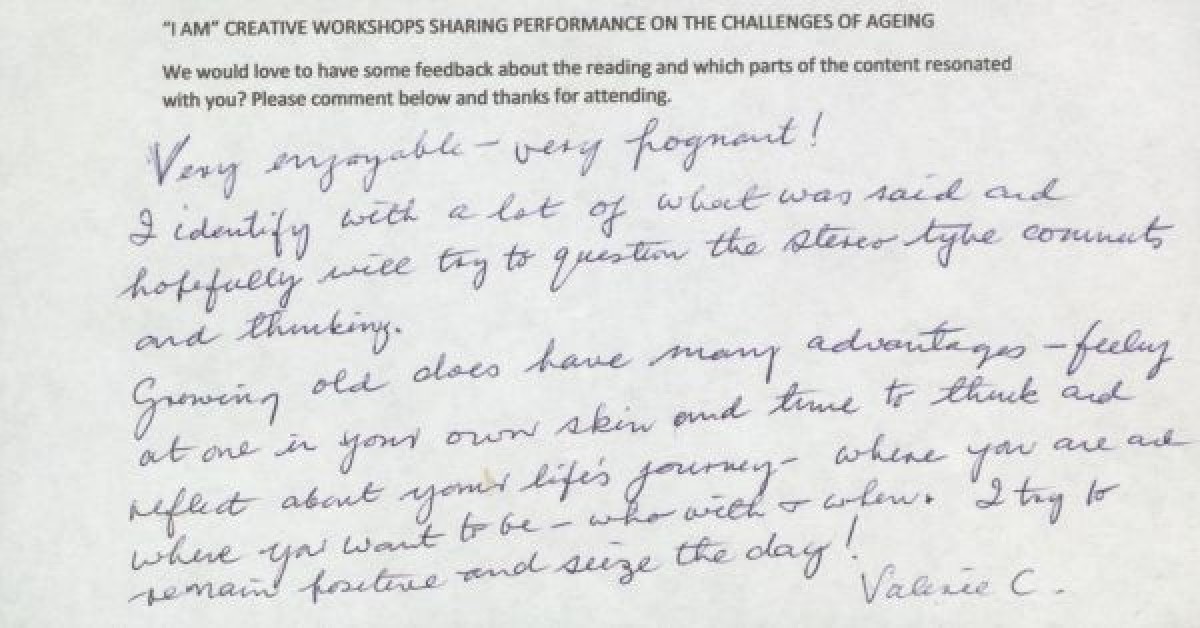 "I AM" CREATIVE WORKSHOPS SHARING PERFORMANCE ON THE CHALLENGES OF AGEING
We would love to have some feedback about the reading and which parts of the content resonated
with you? Please comment below and thanks for attending.
Very enjoyable - very pognant!
I identify with a lot of what was said and
hopefully will try to question the stereo type comments
and thinking.
Growing old does have many advantages - feeling
at one in your own skin and time to think and
reflect about your life's journey - where you are and
where you want to be - who with & when. I try to
remain positive and seize the day!
Valerie C.